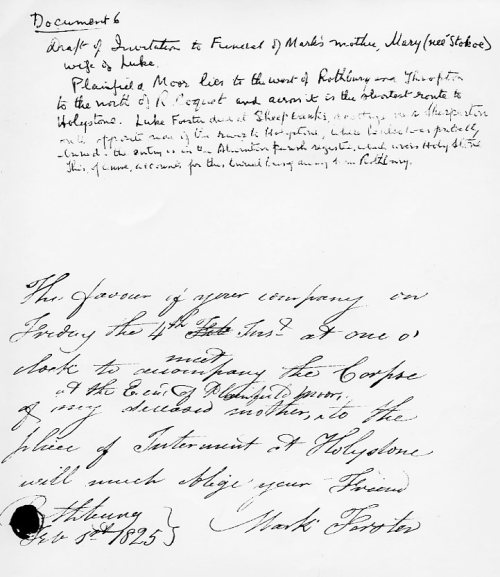 Document 6
draft of Invitation to Funeral of Mark's mother, Mary (neé Stokoe)
wife of Luke.
Plainfield Moor lies to the west of Rothbury and Thropton
to the north of R. Coquet and across it is the shortest route to
Holystone. Luke Forster died at Sheep banks,
only opposite side of the river to Holystone, where
the entry is in the Alwinton parish register, which covers Holystone
This, of course, accounts for this burial being away from Rothbury.
The favour of your company on
Friday the 4th Feb Inst at one o
clock to meet accompany the Corpse
at the E end of Plainfield moor,
of my deceased mother, to the
place of Interment at Holystone
will much oblige your Friend
Rothbury
Feb 1st 1825 } Mark Forster